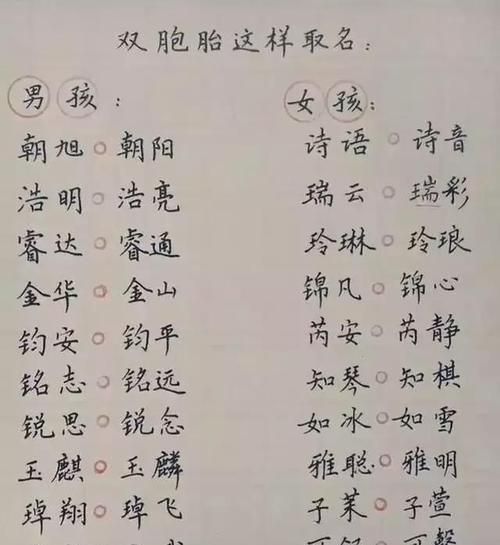 双胞胎这样取名：
男孩：
朝旭 朝阳
浩明 浩亮
睿达 睿通
金华 金山
钧安 钧平
铭志 铭远
锐思 锐念
玉麒 玉麟
琸翔 琸飞
女孩：
诗语 诗音
瑞云 瑞彩
玲琳 玲琅
锦凡 锦心
芮安 芮静
知琴 知棋
如冰 如雪
雅聪 雅明
子茱 子萱